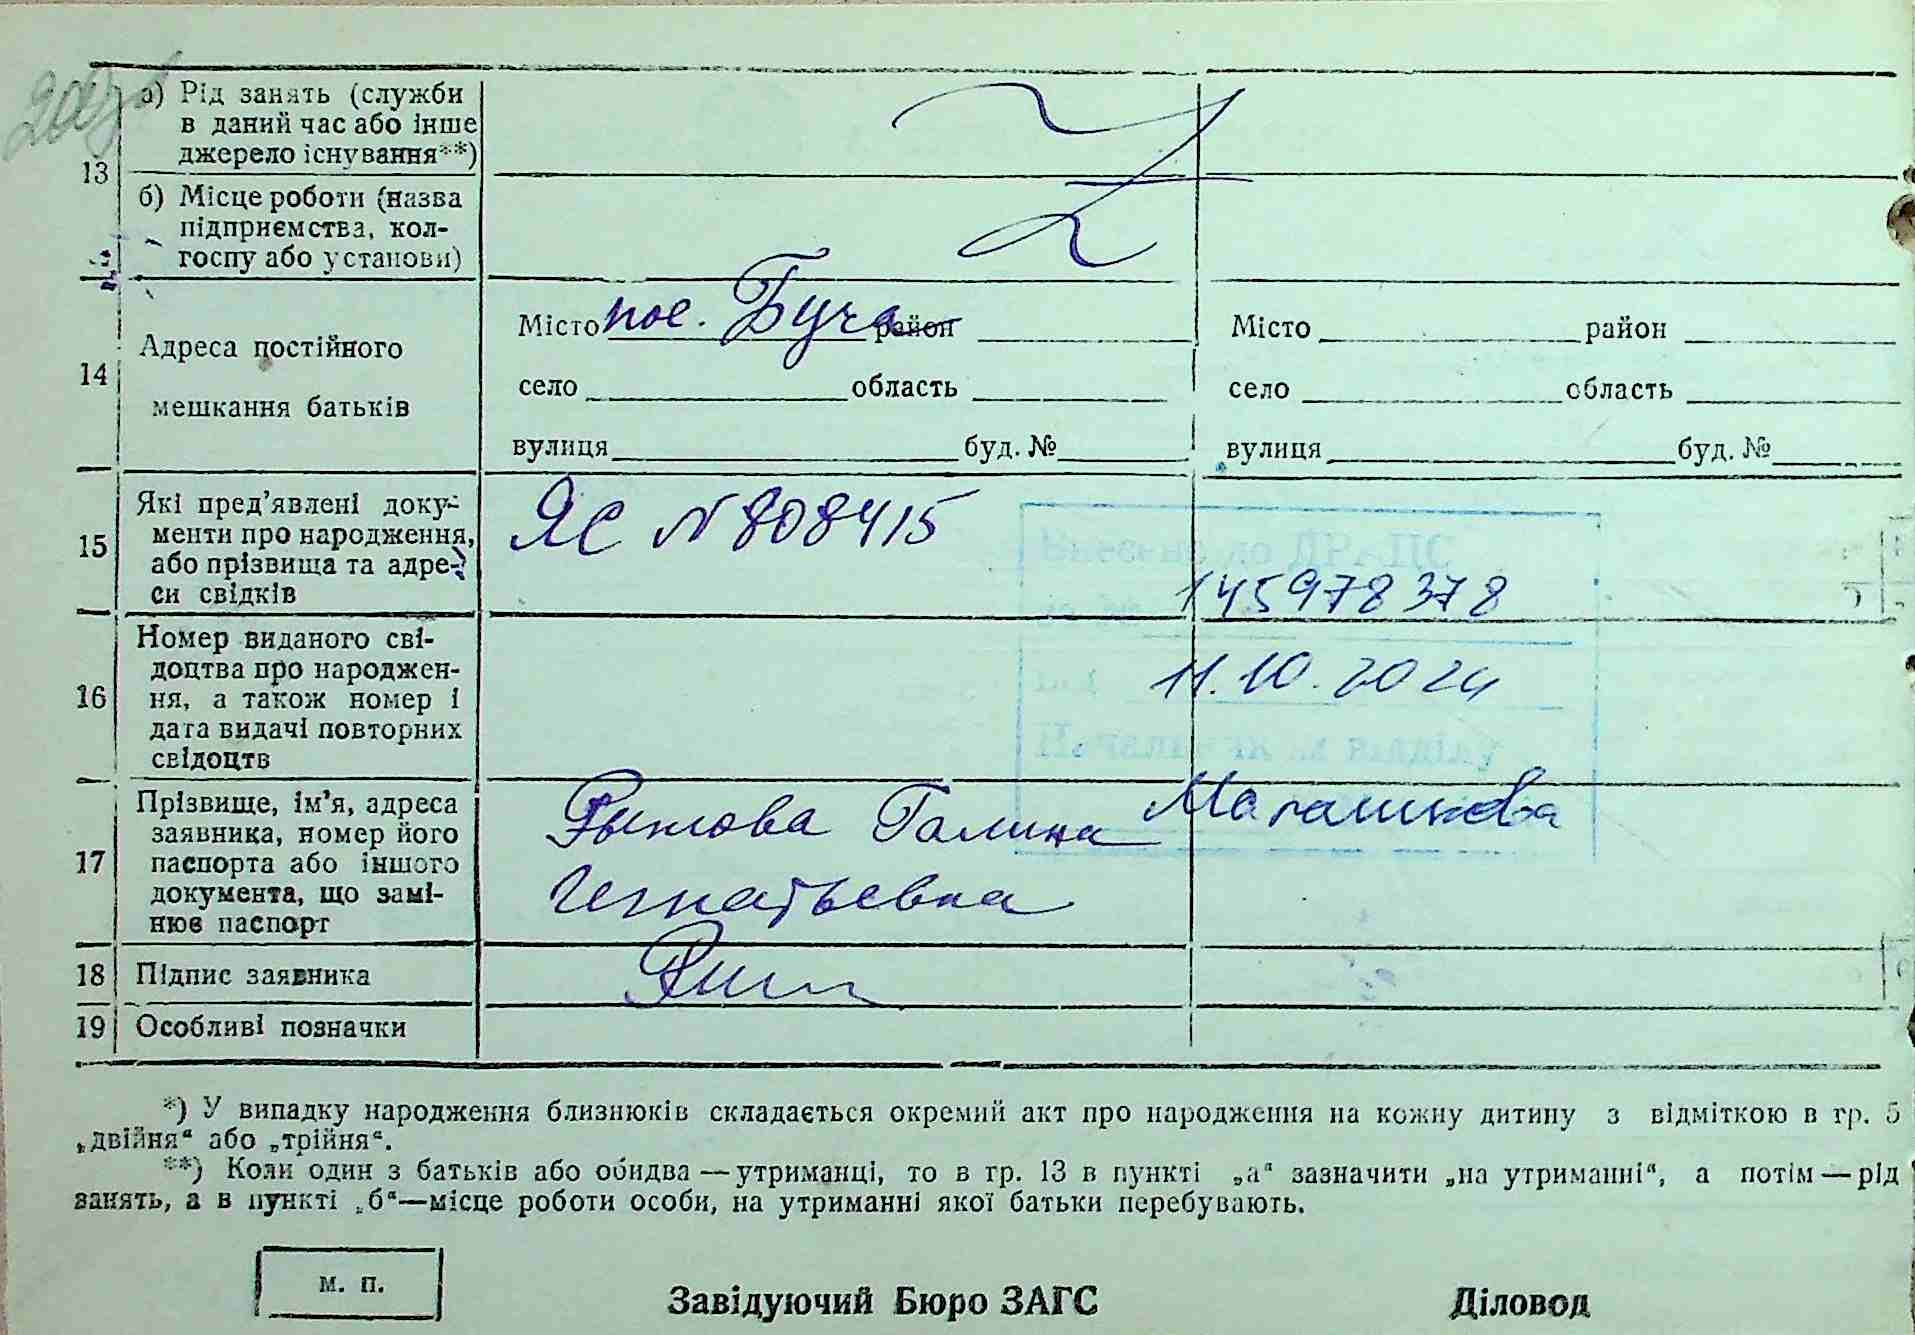 13
а) Рід занять (служби
в даний час або інше
джерело існування**)
б) Місце роботи (назва
підприємства, кол-
госпу або установи)
14
Адреса постійного
мешкання батьків
Місто пос. Буча район
село область
вулиця буд. №
Місто район
село область
вулиця буд. №
15
Які пред’явлені доку-
менти про народження,
або прізвища та адре-
си свідків
ЯС N 808415
Внесено до ДРАЦС
145978378
16
Номер виданого сві-
доцтва про народжен-
ня, а також номер і
дата видачі повторних
свідоцтв
11.10.2024
Начальник відділу
17
Прізвище, ім’я, адреса
заявника, номер його
паспорта або іншого
документа, що замі-
нює паспорт
Рыжова Галина
Игнатьевна
Малашкова
18
Підпис заявника
19
Особливі позначки
*) У випадку народження близнюків складається окремий акт про народження на кожну дитину з відміткою в гр. 5
„двійня“ або „трійня“.
**) Коли один з батьків або обидва — утриманці, то в гр. 13 в пункті „а“ зазначити „на утриманні“, а потім — рід
занять, а в пункті „б“—місце роботи особи, на утриманні якої батьки перебувають.
м. п.
Завідуючий Бюро ЗАГС
Діловод